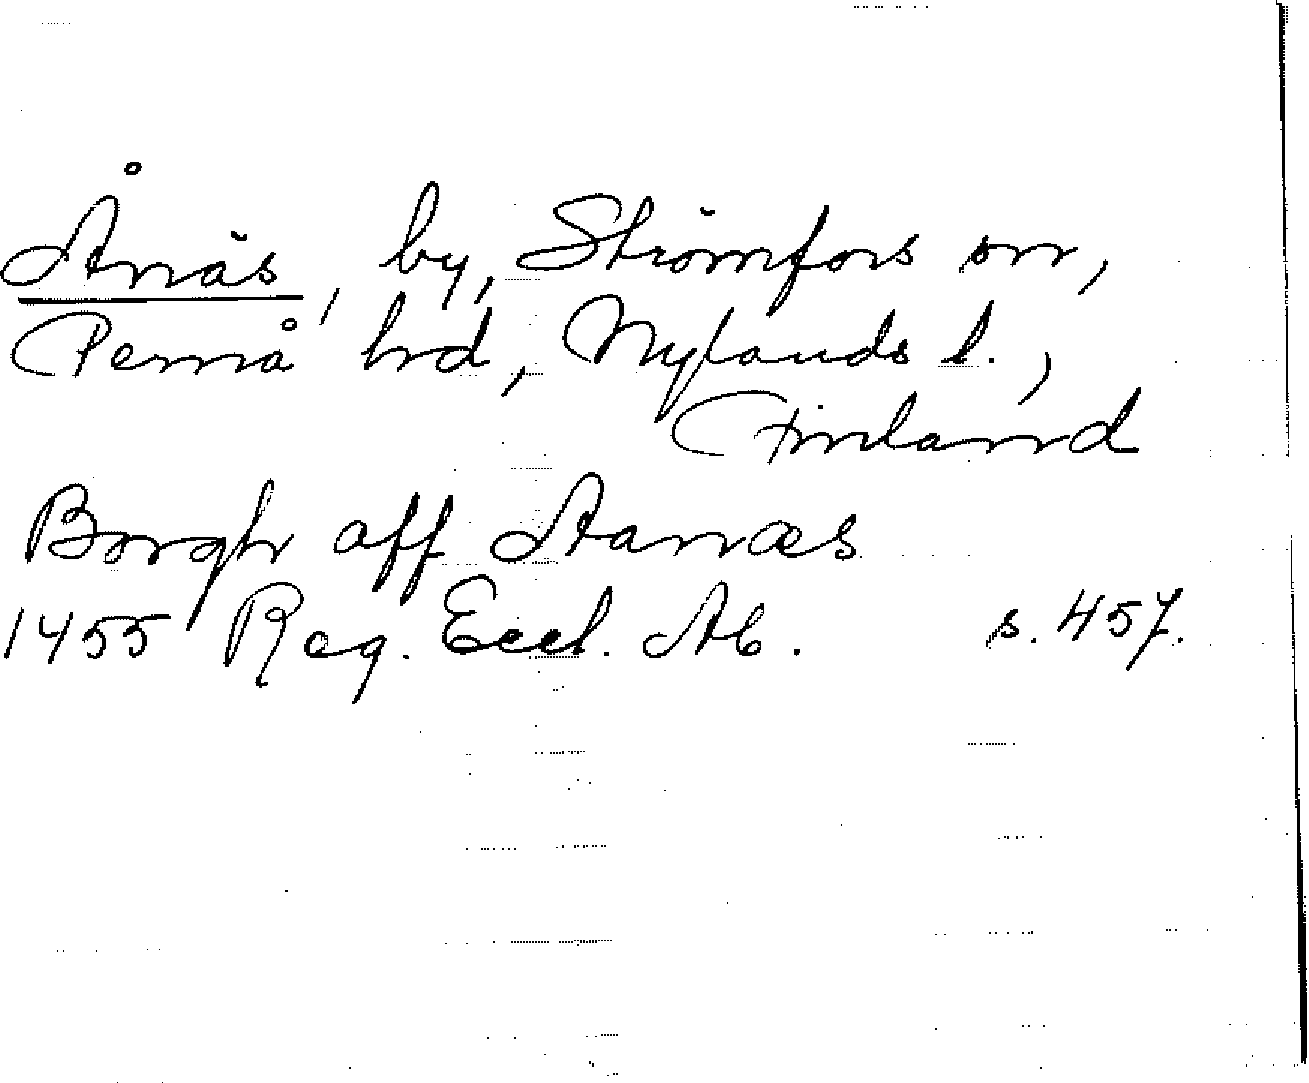 Ånäs, by, Strömfors sn,
Pernå hrd, Nylands l.,
Finland
Borgh aff Aanæs
1455 Reg. Eccl. Ab. s. 457.